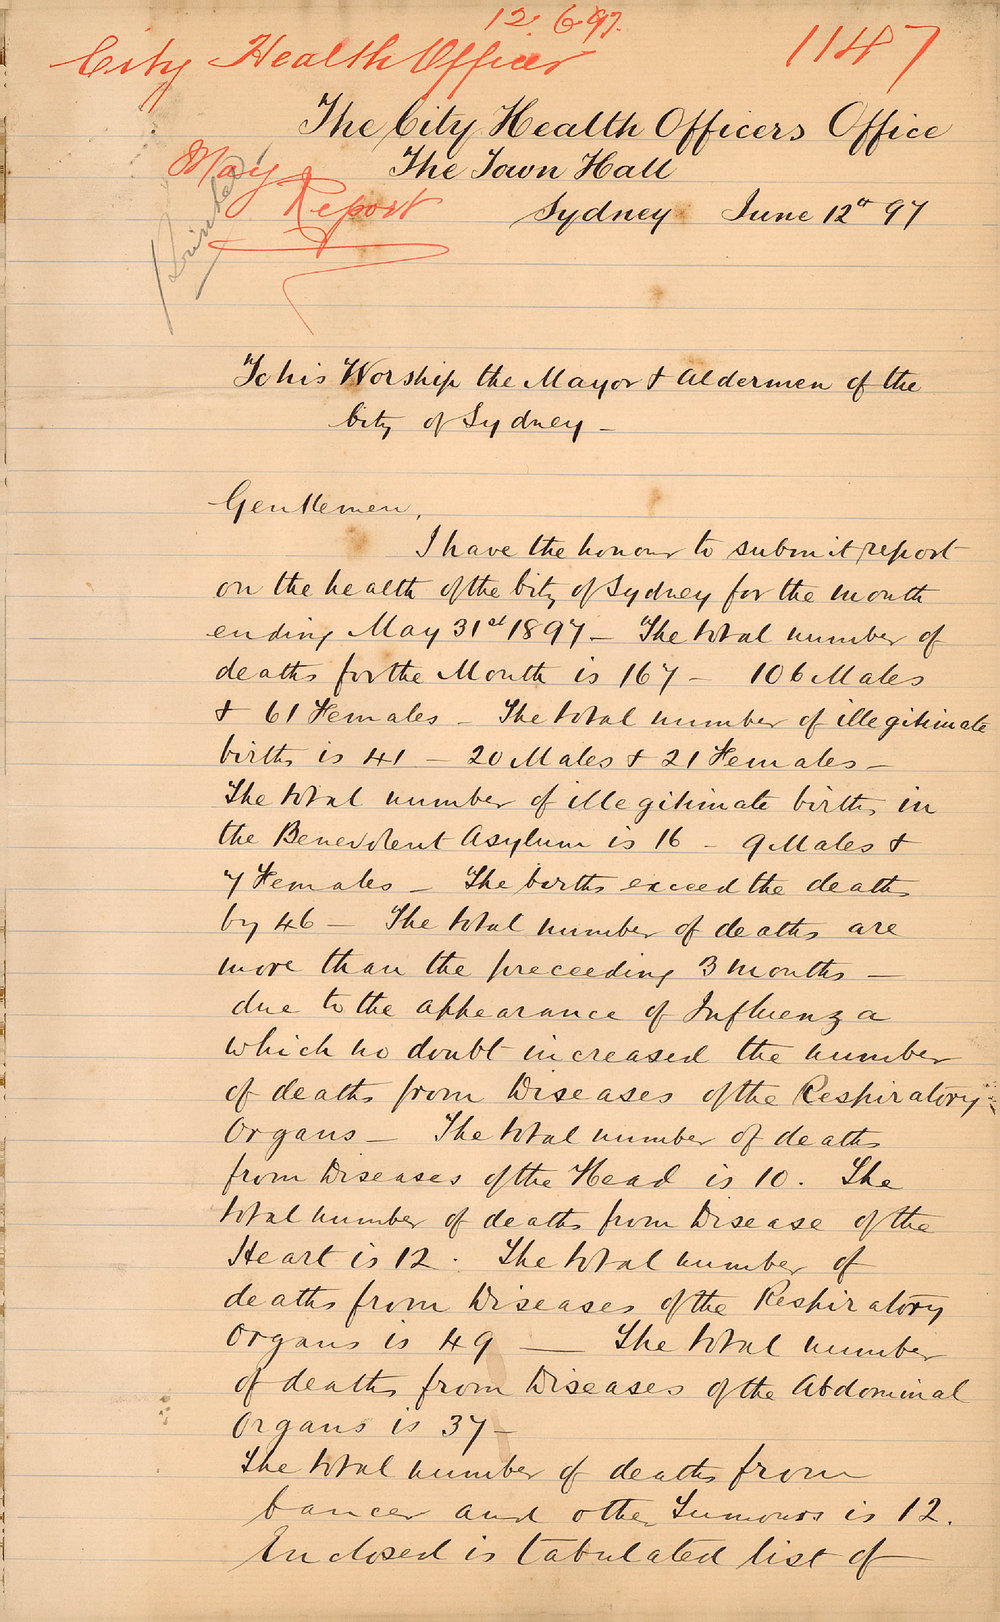 12.6.97.
City Health Officer
1147
The City Health Officers Office
The Town Hall
May
Report
Printed
Sydney June 12th 97
To his Worship the Mayor & Aldermen of the
City of Sydney –
Gentlemen,
I have the honour to submit report
on the health of the City of Sydney for the month
ending May 31st 1897 – The total number of
deaths for the Month is 167 – 106 Males
& 61 Females – The total number of illegitimate
births is 41 – 20 Males & 21 Females –
The total number of illegitimate births in
the Benevolent Asylum is 16 – 9 Males &
7 Females – The births exceed the deaths
by 46 – The total number of deaths are
more than the preceeding 3 months –
due to the appearance of Influenza
which no doubt increased the number
of deaths from Diseases of the Respiratory
Organs – The total number of deaths
from Diseases of the Head is 10. The
total number of deaths from Disease of the
Heart is 12. The total number of
deaths from Diseases of the Respiratory
Organs is 49 — The total number
of deaths from Diseases of the Abdominal
Organs is 37 –
The total number of deaths from
Cancer and other Tumours is 12.
Enclosed is tabulated list of